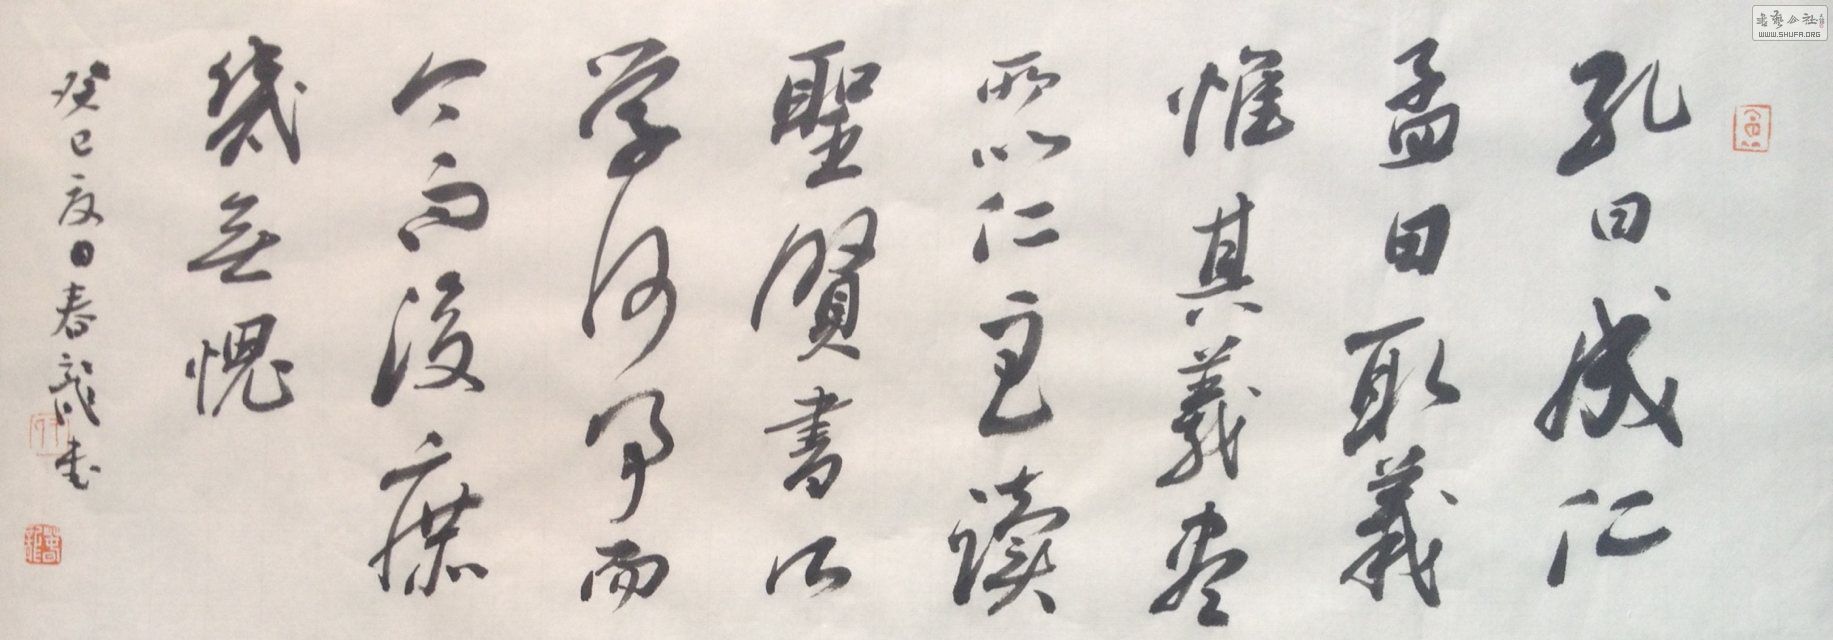 孔曰成仁
孟曰取義
惟其義盡
所以仁至讀
聖賢書所
学何事而
今而後庶
幾無愧
癸巳夏日春龍書
書藝公社
WWW.SHUFA.ORG